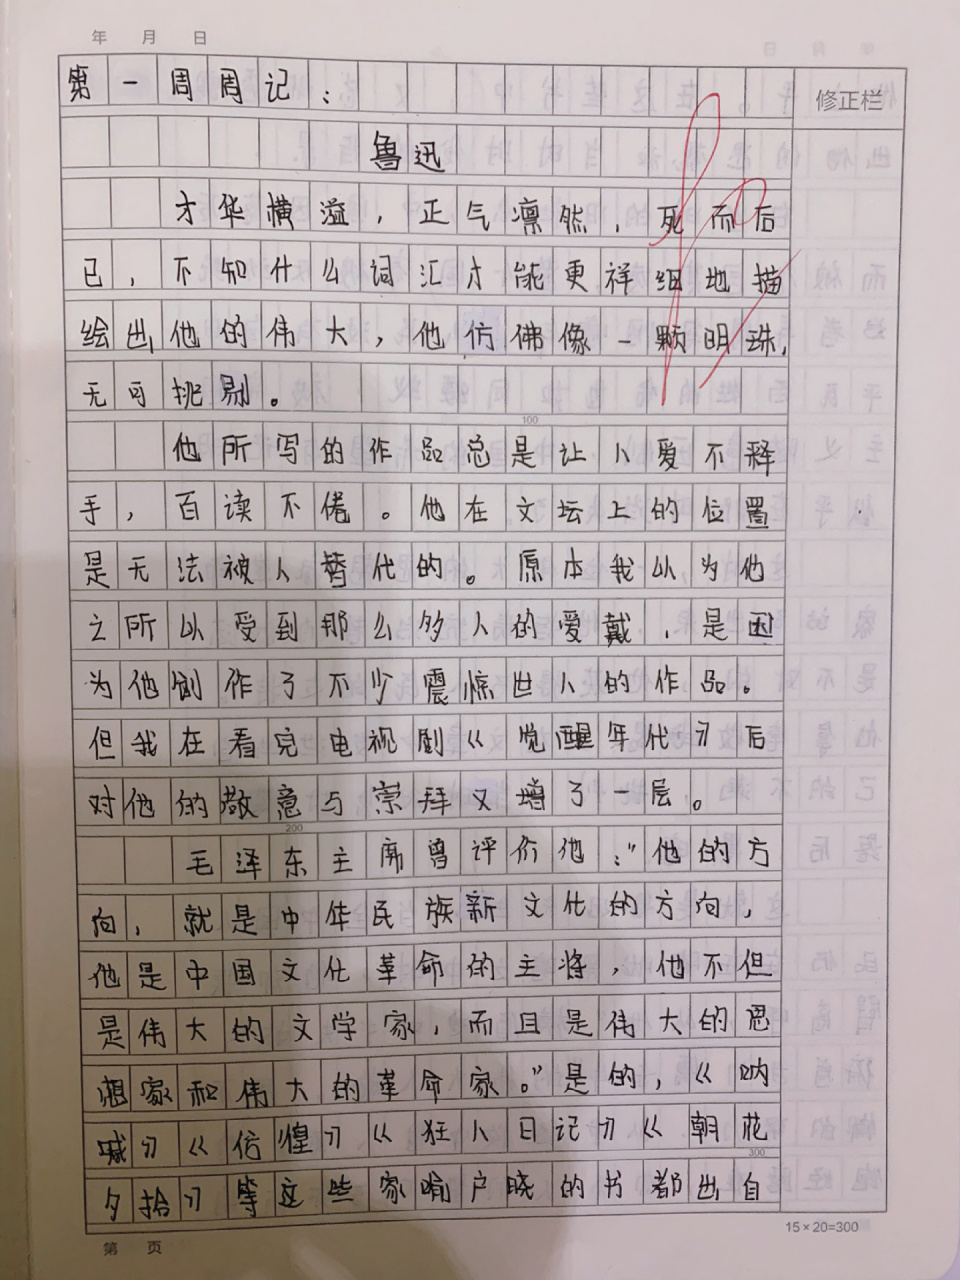 年 月 日
第一周周记：
修正栏
鲁迅
才华横溢，正气凛然，死而后
已，不知什么词汇才能更祥细地描
绘出他的伟大，他仿佛像一颗明珠，
无可挑剔。
100
他所写的作品总是让人爱不释
手，百读不倦。他在文坛上的位置
是无法被人替代的。原本我以为他
之所以受到那么多人的爱戴，是因
为他创作了不少震惊世人的作品。
但我在看完电视剧《觉醒年代》后
对他的敬意与崇拜又增了一层。
200
毛泽东主席曾评价他：“他的方
向，就是中华民族新文化的方向，
他是中国文化革命的主将，他不但
是伟大的文学家，而且是伟大的思
想家和伟大的革命家。”是的，《呐
喊》《彷徨》《狂人日记》《朝花
300
夕拾》等这些家喻户晓的书都出自
15×20=300
第 页